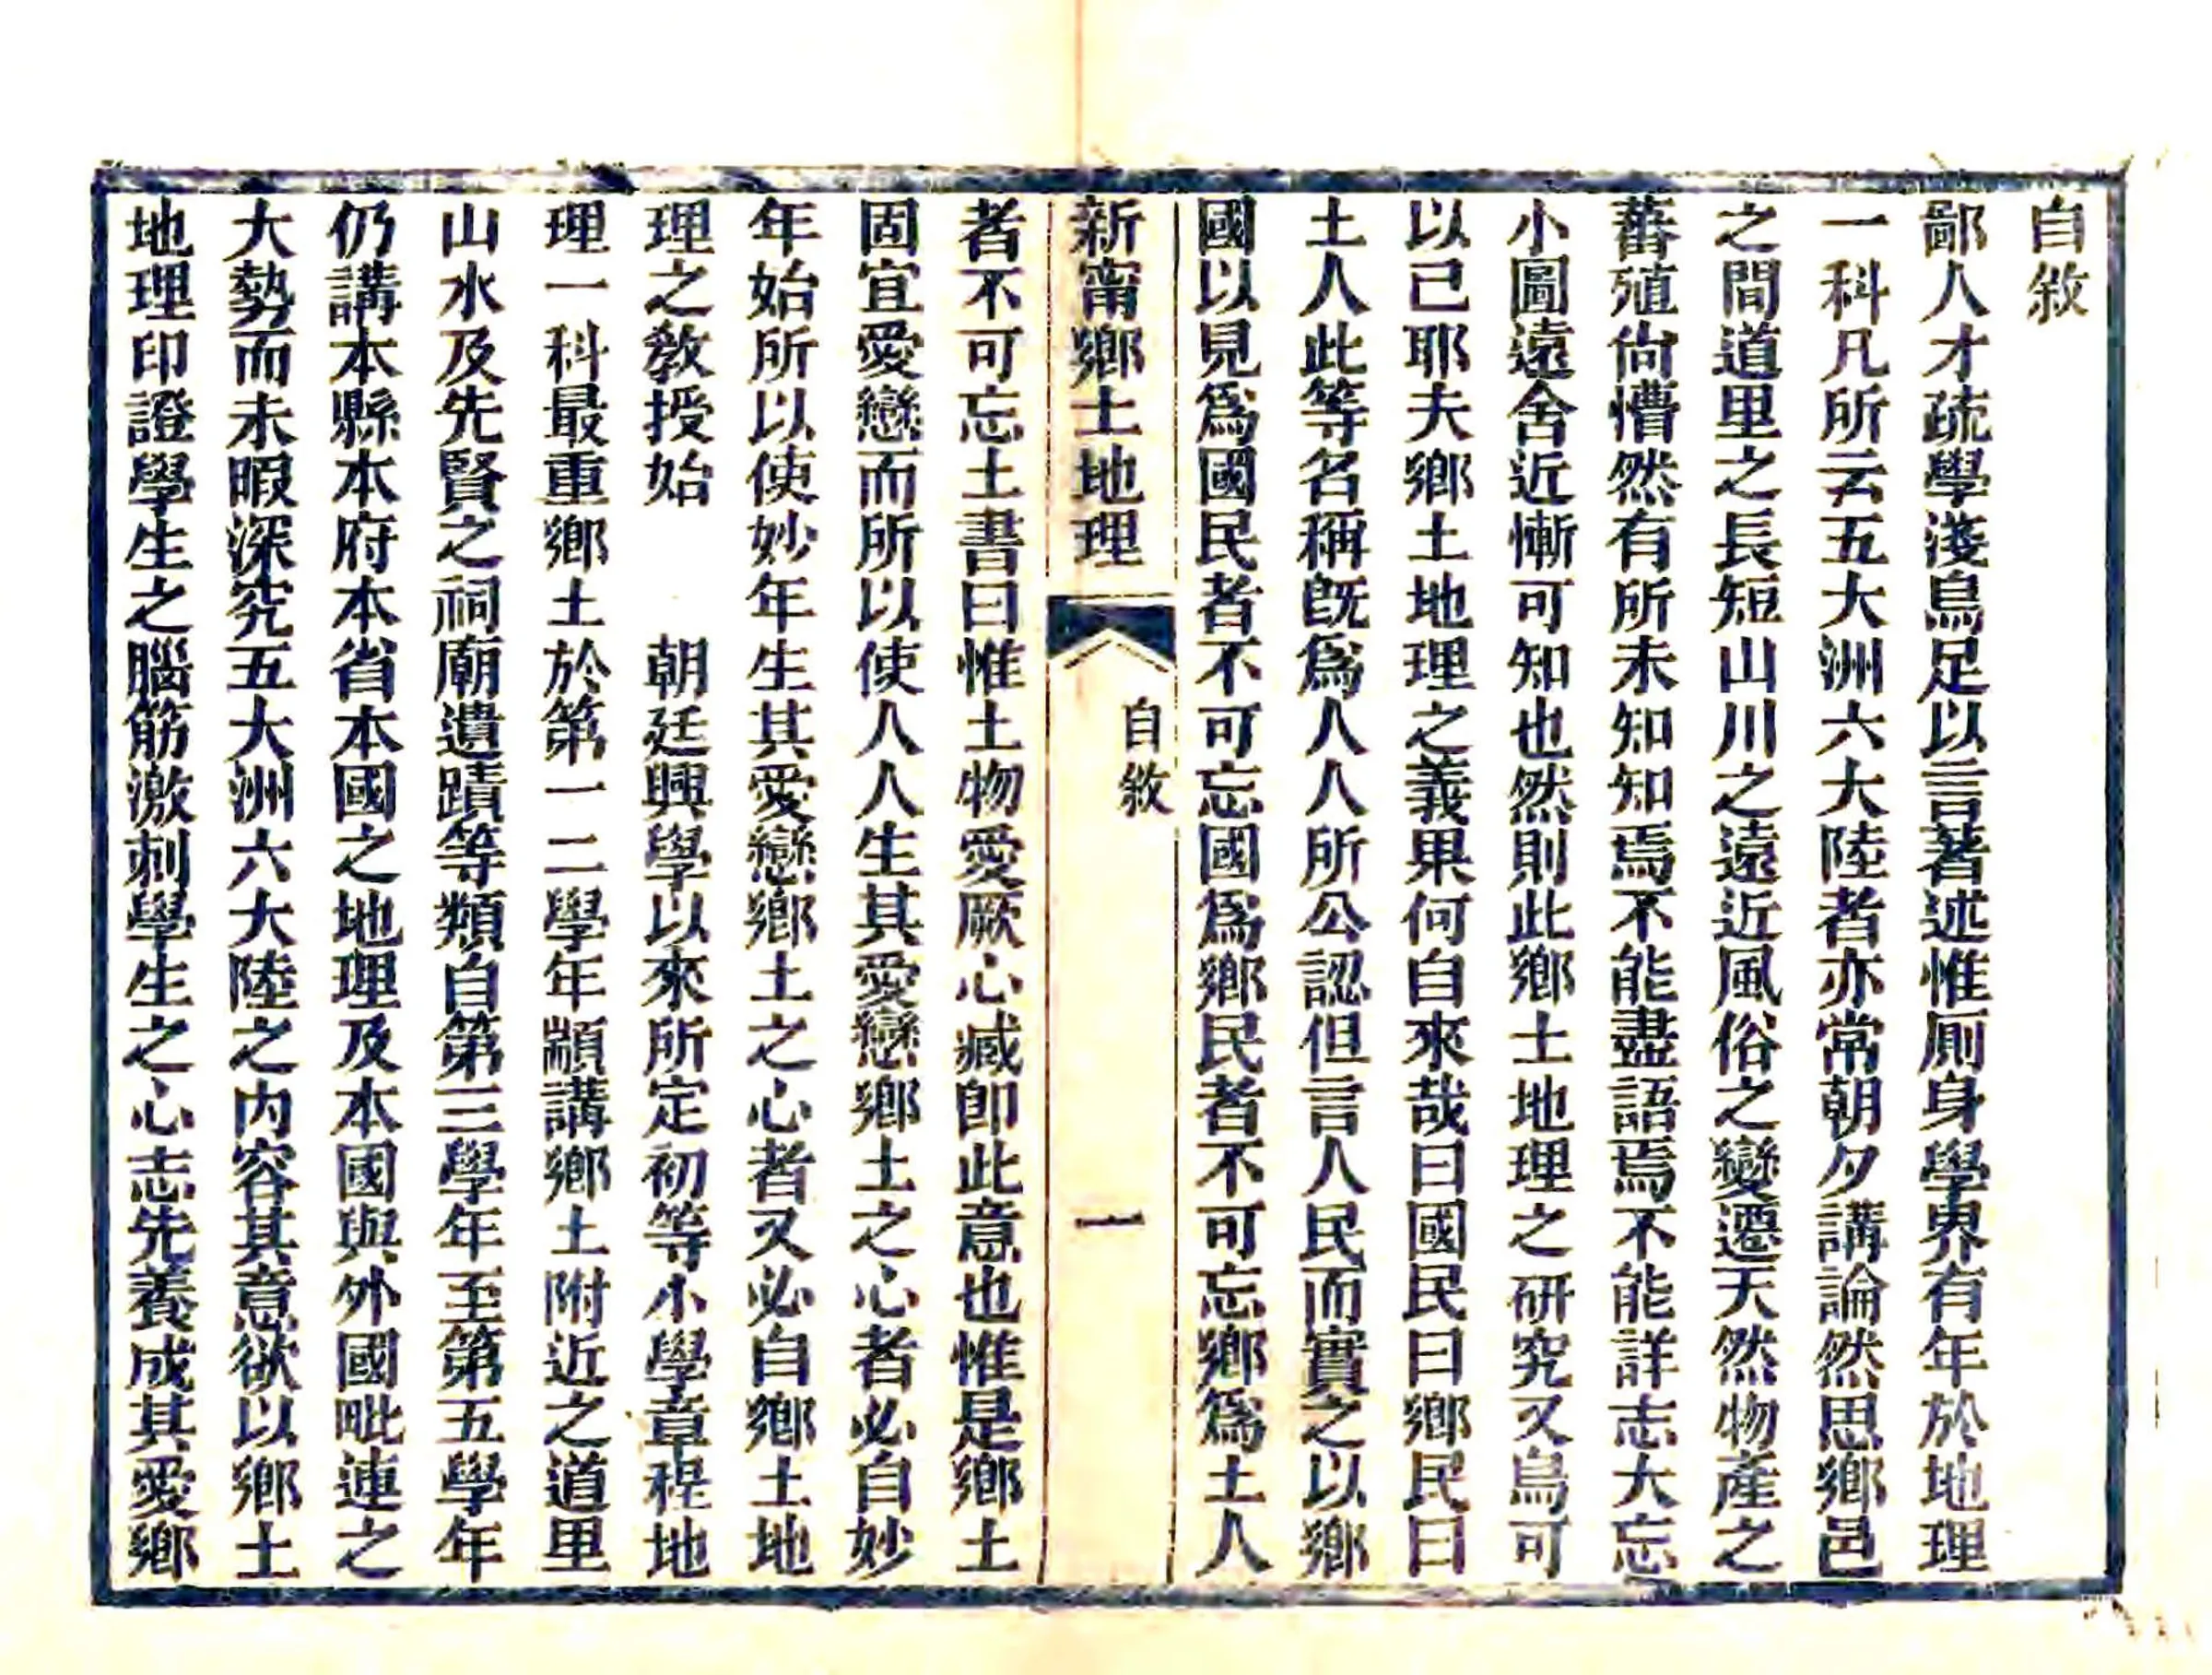 自敘
鄙人才疏學淺烏足以言著述惟厠身學界有年於地理
一科凡所云五大洲六大陸者亦常朝夕講論然思鄉邑
之間道里之長短山川之遠近風俗之變遷天然物產之
蕃殖尙懵然有所未知知焉不能盡語焉不能詳志大忘
小圖遠舍近慚可知也然則此鄉土地理之研究又烏可
以已耶夫鄉土地理之義果何自來哉曰國民曰鄉民曰
土人此等名稱旣爲人人所公認但言人民而實之以鄉
國以見爲國民者不可忘國爲鄉民者不可忘鄉爲土人
新甯鄉土地理
自敘
一
者不可忘土書曰惟土物愛厥心臧卽此意也惟是鄉土
固宜愛戀而所以使人人生其愛戀鄉土之心者必自妙
年始所以使妙年生其愛戀鄉土之心者又必自鄉土地
理之敎授始　朝廷興學以來所定初等小學章程地
理一科最重鄉土於第一二學年顓講鄉土附近之道里
山水及先賢之祠廟遺蹟等類自第三學年至第五學年
仍講本縣本府本省本國之地理及本國與外國毗連之
大勢而未暇深究五大洲六大陸之內容其意欲以鄉土
地理印證學生之腦筋激刺學生之心志先養成其愛鄉